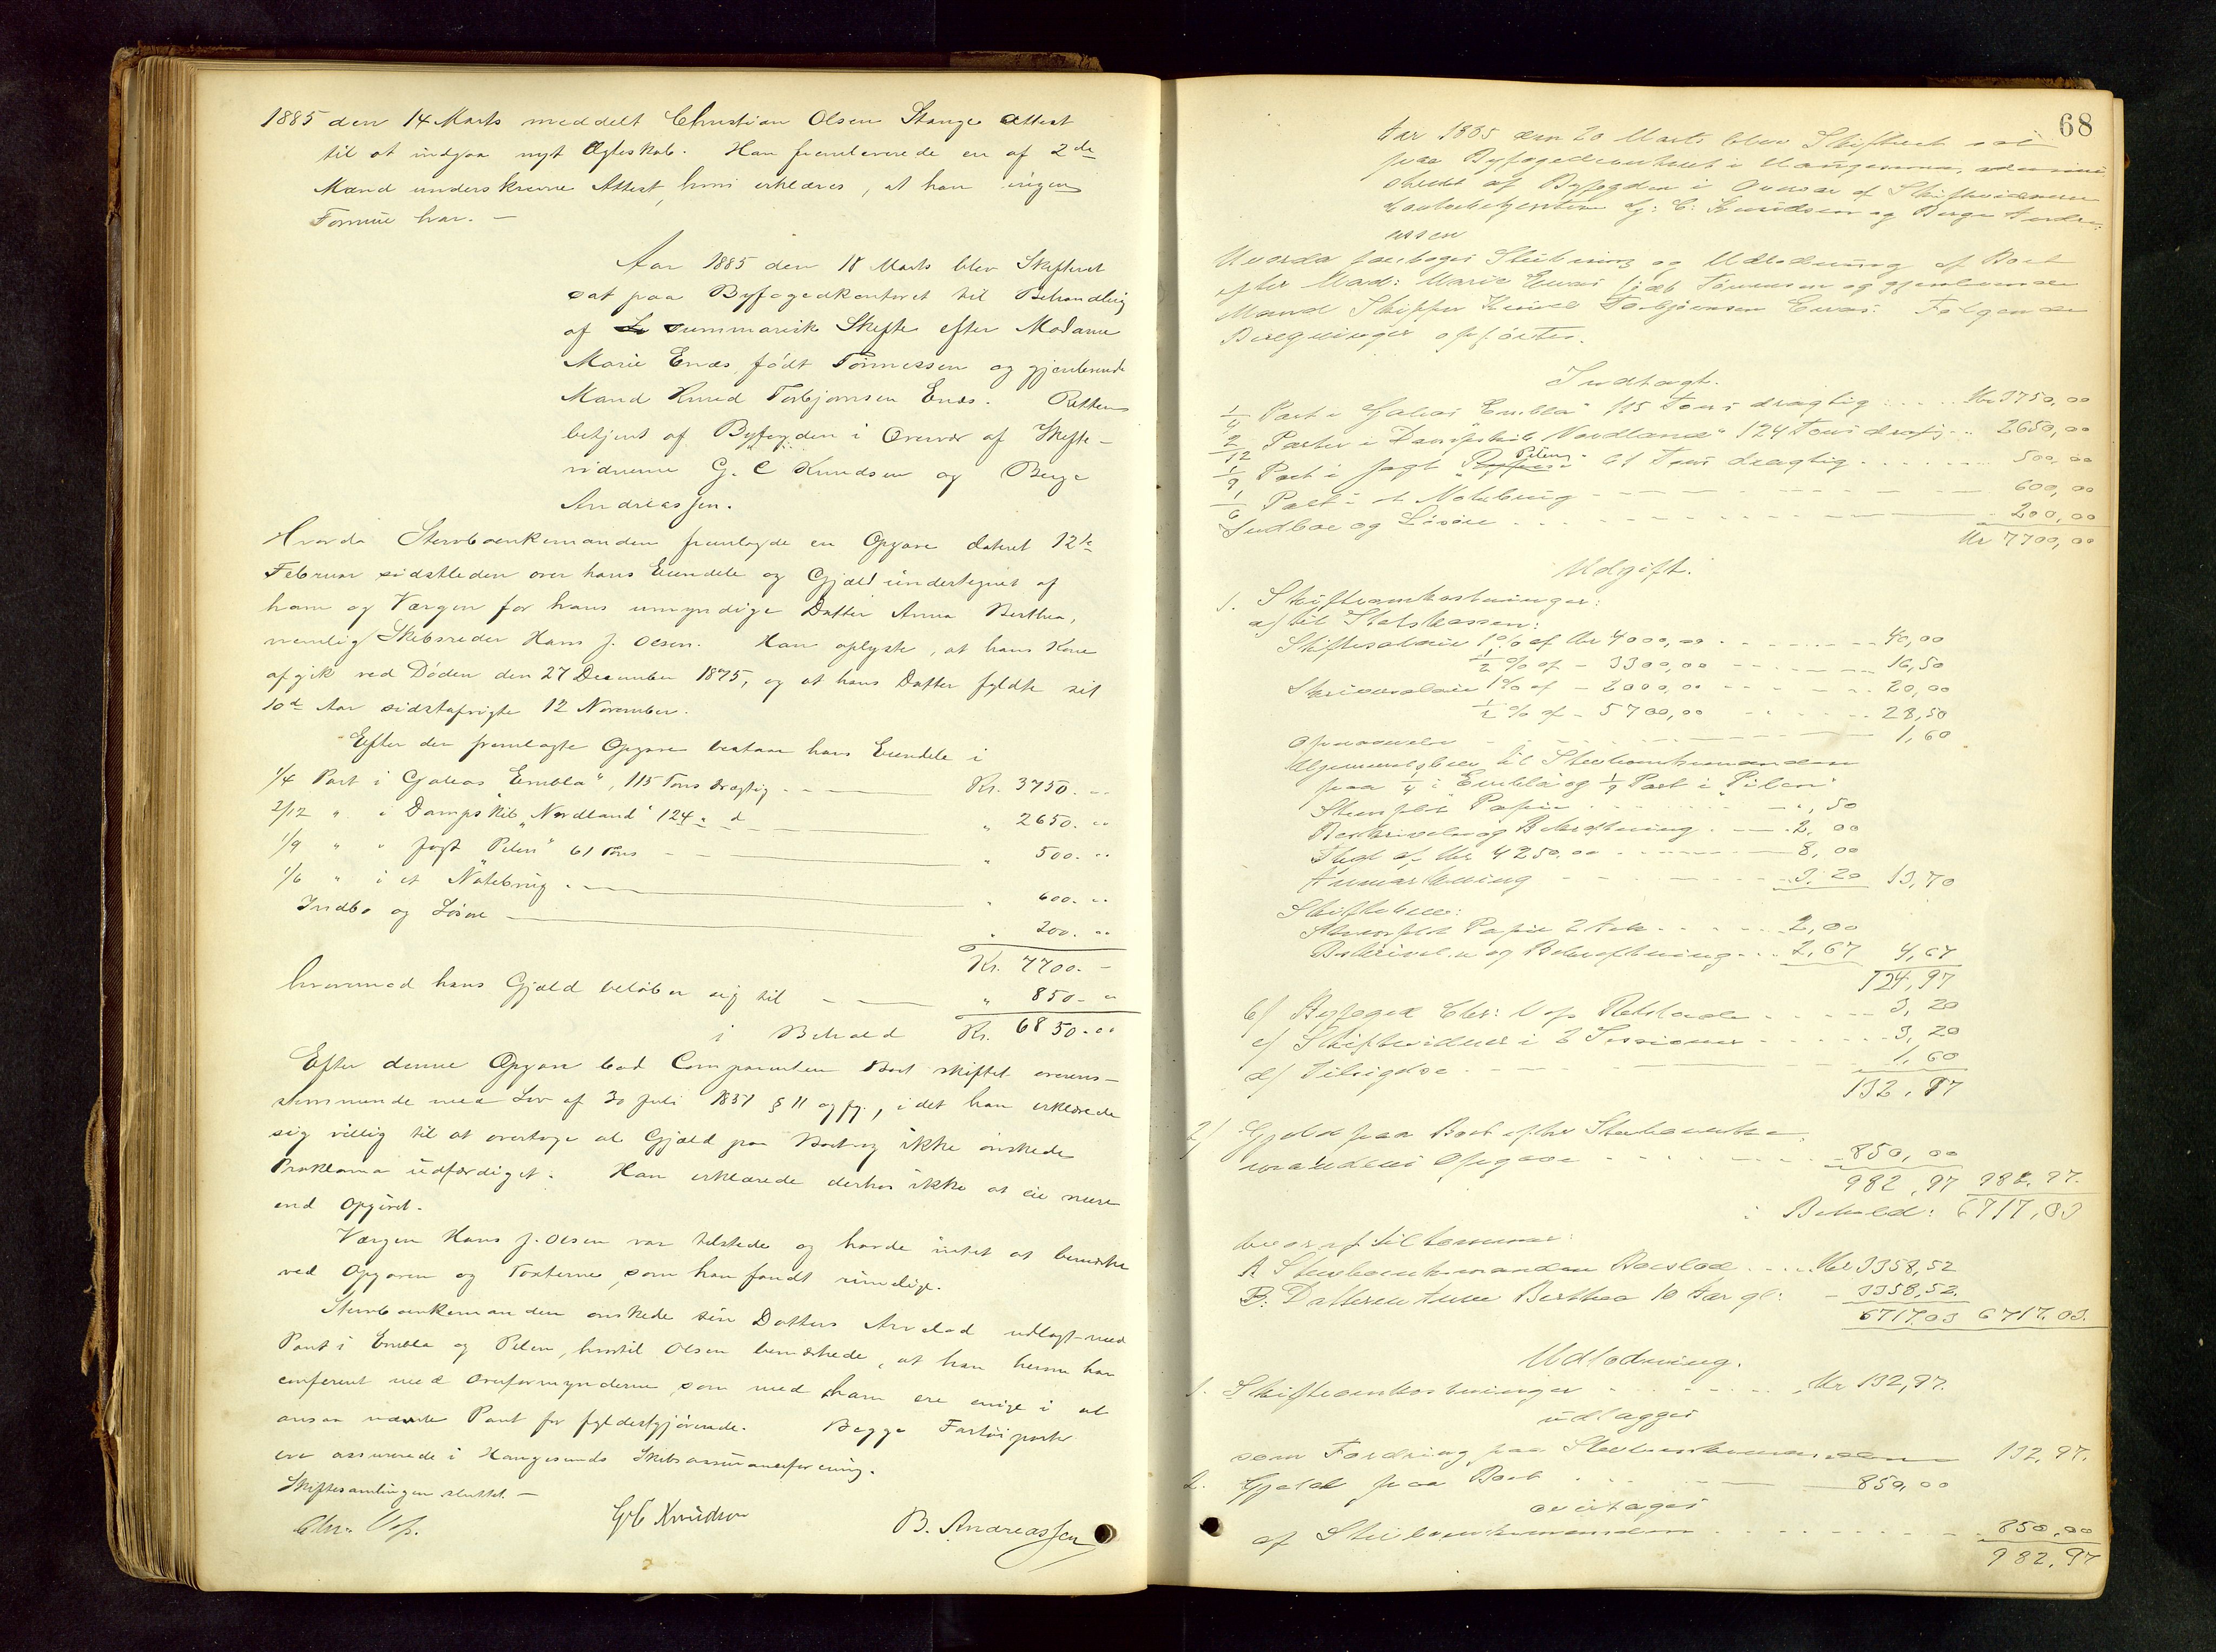 1885 den 14 Marts meddelt Christian Olsen Stange Attest
til at indgaa nyt Ægteskab. Han fremleverede en af 2de
Mænd underskreven Attest, hvori erklæres, at han ingen
Formue har. —
Aar 1885 den 18 Marts blev Skifteret
sat paa Byfogedkontoret til Behandling
af summarisk Skifte efter Madame
Marie Enæs, født Tönnessen og gjenlevende
Mand Knud Torbjørnsen Enæs. Retten
betjent af Byfogden i Overvær af Skifte-
vidnerne G. C Knudsen og Berge
Andreassen.
Hvorda Stervboenkemanden fremlagde en Opgave dateret 12te
Februar sidstleden over hans Eiendele og Gjæld undertegnet af
ham og Værgen for hans umyndige Datter Anna Berthea,
nemlig Skibsreder Hans J. Olsen. Han oplyste, at hans Kone
afgik ved Döden den 27 December 1875, og at hans Datter fyldte sit
10de Aar sidstafvigte 12 November.
Efter den fremlagte Opgave bestaar hans Eiendele i
1/4 Part i Galeas "Embla", 115 Tons drægtig — Kr. 3750. "
2/12 " i Dampskib "Nordland" 124 " d — " 2650. "
1/9 " " Jagt "Pilen" 61 Tons — " 500. "
1/6 " i et Notebrug — " 600. "
Indbo og Lösöre — " 200. "
Kr. 7700. —
hvorimod hans Gjæld belöber sig til — " 850. "
i Behold Kr. 6850. 00
Efter denne Opgave bad Comparenten Boet skiftet overens-
stemmende med Lov af 30 Juli 1851 § 11 og flg., idet han erklærede
sig villig til at overtage al Gjæld paa Boet og ikke önskede
Proklama udfærdiget. Han erklærede derhos ikke at eie mere
end opgivet.
Værgen Hans J. Olsen var tilstede og havde intet at bemærke
ved Opgaven og Taxterne, som han fandt rimelige.
Stervboenkemanden önskede sin Datters Arvelod udlagt med
Pant i Embla og Pilen, hvortil Olsen bemærkede, at han herom har
confereret med Overformynderne, som med ham ere enige i at
ansaa nævnte Pant for fyldestgjörende. Begge Fartöiparter
ere assurerede i Haugesunds Skibsassuranceforening.
Skiftesamlingen sluttet. —
Chr. Vop. G C Knudsen B. Andreassen
68
Aar 1885 den 20 Marts blev Skifteret sat
paa Byfogedkontoret i Haugesund, admini-
streret af Byfogden i Overvær af Skiftevidnerne
Kontorbetjentene G: C: Knudsen og Berge Andre-
assen
Hvorda foretoges Slutning og Udlodning af Boet
efter Mad: Marie Enæs född Tönnesen og gjenlevende
Mand Skipper Knud Torbjörnsen Enæs. Følgende
Beregninger opfòrtes.
Indtægt.
1/4 Part i Galeas "Embla" 115 Tons drægtig . . . . Kr 3750,00
2/12 Parter i Dampskib "Nordland" 124 Tons drægtig . . 2650,00
1/9 Part i Jagt "Pilen" 61 Tons drægtig . . . . 500,00
1/6 Part i et Notebrug — 600,00
Indboe og Lösöre . . . — 200,00
Kr 7700,00
Udgift.
1. Skifteomkostninger:
a/ til Statskassen:
Skiftesalair 1% af Kr 4000,00 — 40,00
1/2 % af - 3300,00 — 16,50
Skriversalair 1% af - 2000,00 — 20,00
1/2 % af - 5700,00 — 28,50
Opnævnelse — 1,60
til Stervboenkemanden
paa 1/4 i "Embla" og 1/9 Part i "Pilen"
Stemplet Papir — ",50
Beskrivelse og Bekræftning — 2,00
af Kr 4250,00 — 8,00
Anmærkning — 3.20 13,70
Skiftebrev:
Stemplet Papir 2 Ark — 2,00
Beskrivelse og Bekræftning — 2,67 4,67
124,97
b/ Byfoged Chr: Vop — 3,20
c/ Skiftevidner i 2 Sessioner — 3,20
d/ Tilsigelse — 1,60
132,97
2/ Gjeld paa Boet efter Stervboenke-
mandens Opgave — 850,00
982,97 982,97.
i Behold: 6717,03
hvoraf tilkommer:
A Stervboenkemanden Boeslod — Kr 3358,52
B: Datteren Anne Berthea 10 Aar gl: - 3358,52
6717.03 6717.03.
Udlodning.
1. Skifteomkostninger — Kr 132,97.
udlægges
som Fordring paa Stervboenkemanden 132,97.
2. Gjeld paa Boet — 850,00
overtages
af Stervboenkemanden — 850,00
982,97